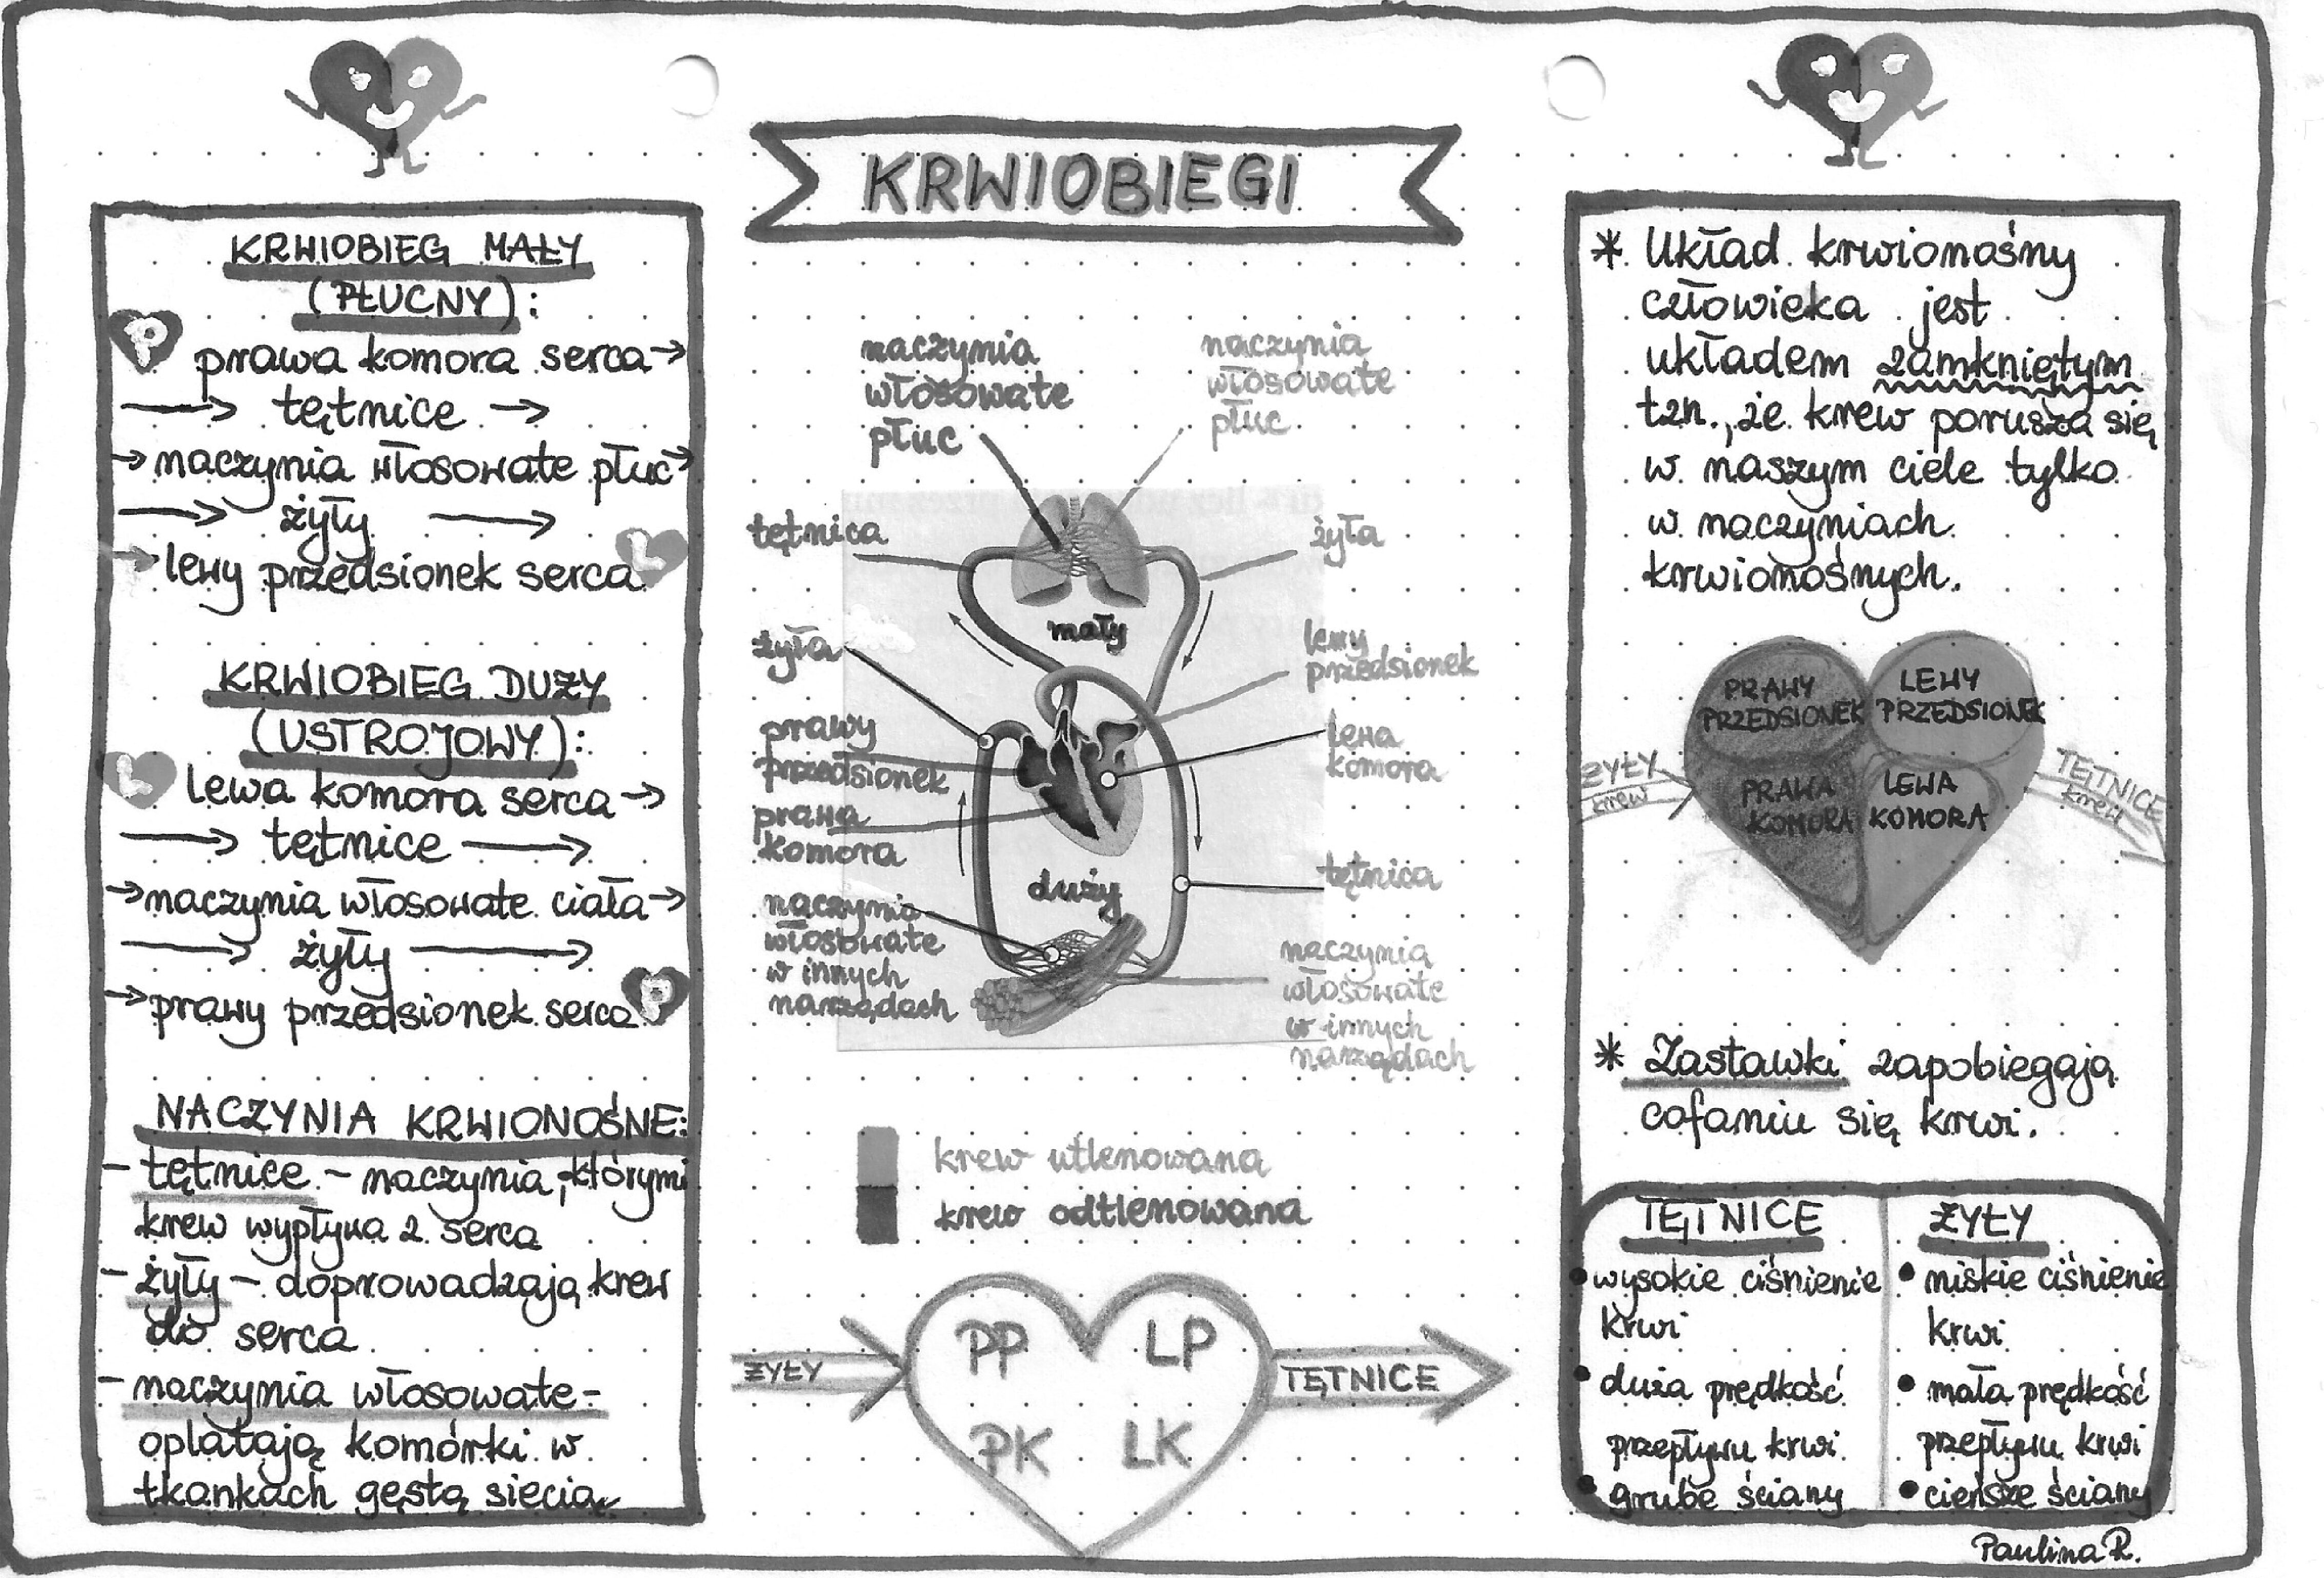 KRWIOBIEGI
KRWIOBIEG MAŁY
(PŁUCNY):
P
prawa komora serca →
→ tętnice →
→ naczynia włosowate płuc →
→ żyły →
→ lewy przedsionek serca
L
KRWIOBIEG DUŻY
(USTROJOWY):
L
lewa komora serca →
→ tętnice →
→ naczynia włosowate ciała →
→ żyły →
→ prawy przedsionek serca
P
NACZYNIA KRWIONOŚNE:
- tętnice - naczynia, którymi
krew wypływa z serca
- żyły - doprowadzają krew
do serca
- naczynia włosowate -
oplatają komórki w
tkankach gęstą siecią
naczynia
włosowate
płuc
naczynia
włosowate
płuc
tętnica
żyła
mały
żyła
lewy
przedsionek
prawy
przedsionek
lewa
komora
prawa
komora
duży
tętnica
naczynia
włosowate
w innych
narządach
naczynia
włosowate
w innych
narządach
krew utlenowana
krew odtlenowana
ŻYŁY
PP LP
PK LK
TĘTNICE
* Układ krwionośny
człowieka jest
układem zamkniętym
tzn., że krew porusza się
w naszym ciele tylko
w naczyniach
krwionośnych.
PRAWY
PRZEDSIONEK
LEWY
PRZEDSIONEK
ŻYŁY
krew
PRAWA
KOMORA
LEWA
KOMORA
TĘTNICE
krew
* Zastawki zapobiegają
cofaniu się krwi.
TĘTNICE
• wysokie ciśnienie
krwi
• duża prędkość
przepływu krwi
• grube ściany
ŻYŁY
• niskie ciśnienie
krwi
• mała prędkość
przepływu krwi
• cieńsze ściany
Paulina R.